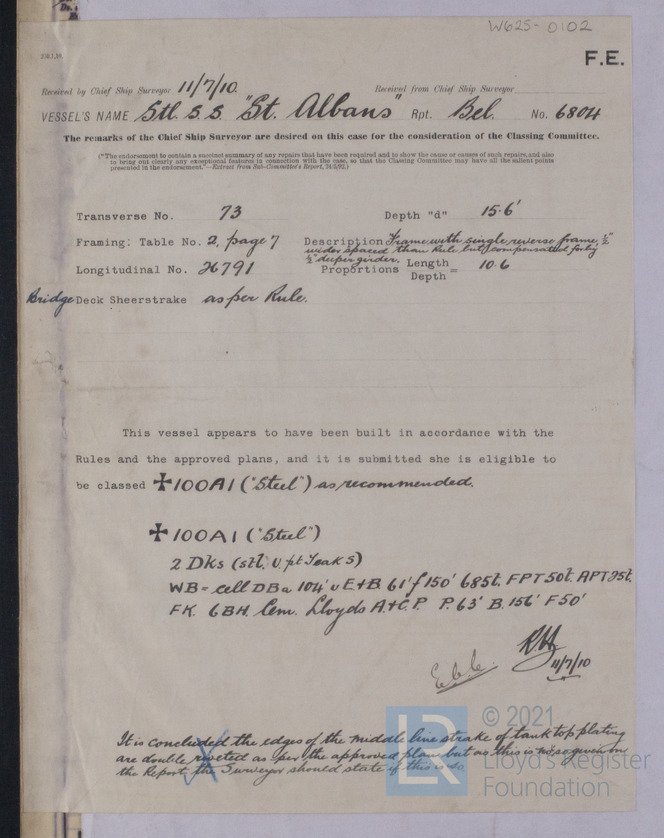 W625-0102
F.E.
Received by Chief Ship Surveyor 11/7/10. Received from Chief Ship Surveyor
VESSEL'S NAME Stl. S. S. "St. Albans" Rpt. Bel. No. 6804
The remarks of the Chief Ship Surveyor are desired on this case for the consideration of the Classing Committee.
("The endorsement to contain a succinct summary of any repairs that have been required and to show the cause or causes of such repairs, and also
to bring out clearly any exceptional features in connection with the case, so that the Classing Committee may have all the salient points
presented in the endorsement."—Extract from Sub-Committee's Report,
Transverse No. 73 Depth "d" 15.6'
Framing: Table No. 2, page 7 Description Frame with single reverse frame, ½"
wider spaced than Rule but compensated for by
½" deeper girder.
Longitudinal No. 26791 Proportions Length
Depth = 10.6
Bridge Deck Sheerstrake as per Rule.
This vessel appears to have been built in accordance with the
Rules and the approved plans, and it is submitted she is eligible to
be classed ✠100A1 ("Steel") as recommended.
✠100A1 ("Steel")
2 Dks (stl. & pt Teak S)
WB = cell DBa 104' u E+B 61' f 150' 685t. FPT 50t. APT 25t.
FK. 6BH. Cem. Lloyds A.&C.P. P. 63' B. 156' F 50'
11/7/10
It is concluded the edges of the middle line strake of tank top plating
are double riveted as per the approved plan but as this is not so given on
the Report the Surveyor should state if this is so.
© 2021
LR
Lloyd's Register
Foundation